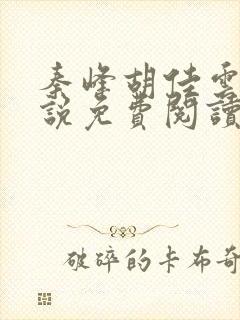 秦峰胡佳雲
說免費閱讀
破碎的卡布奇